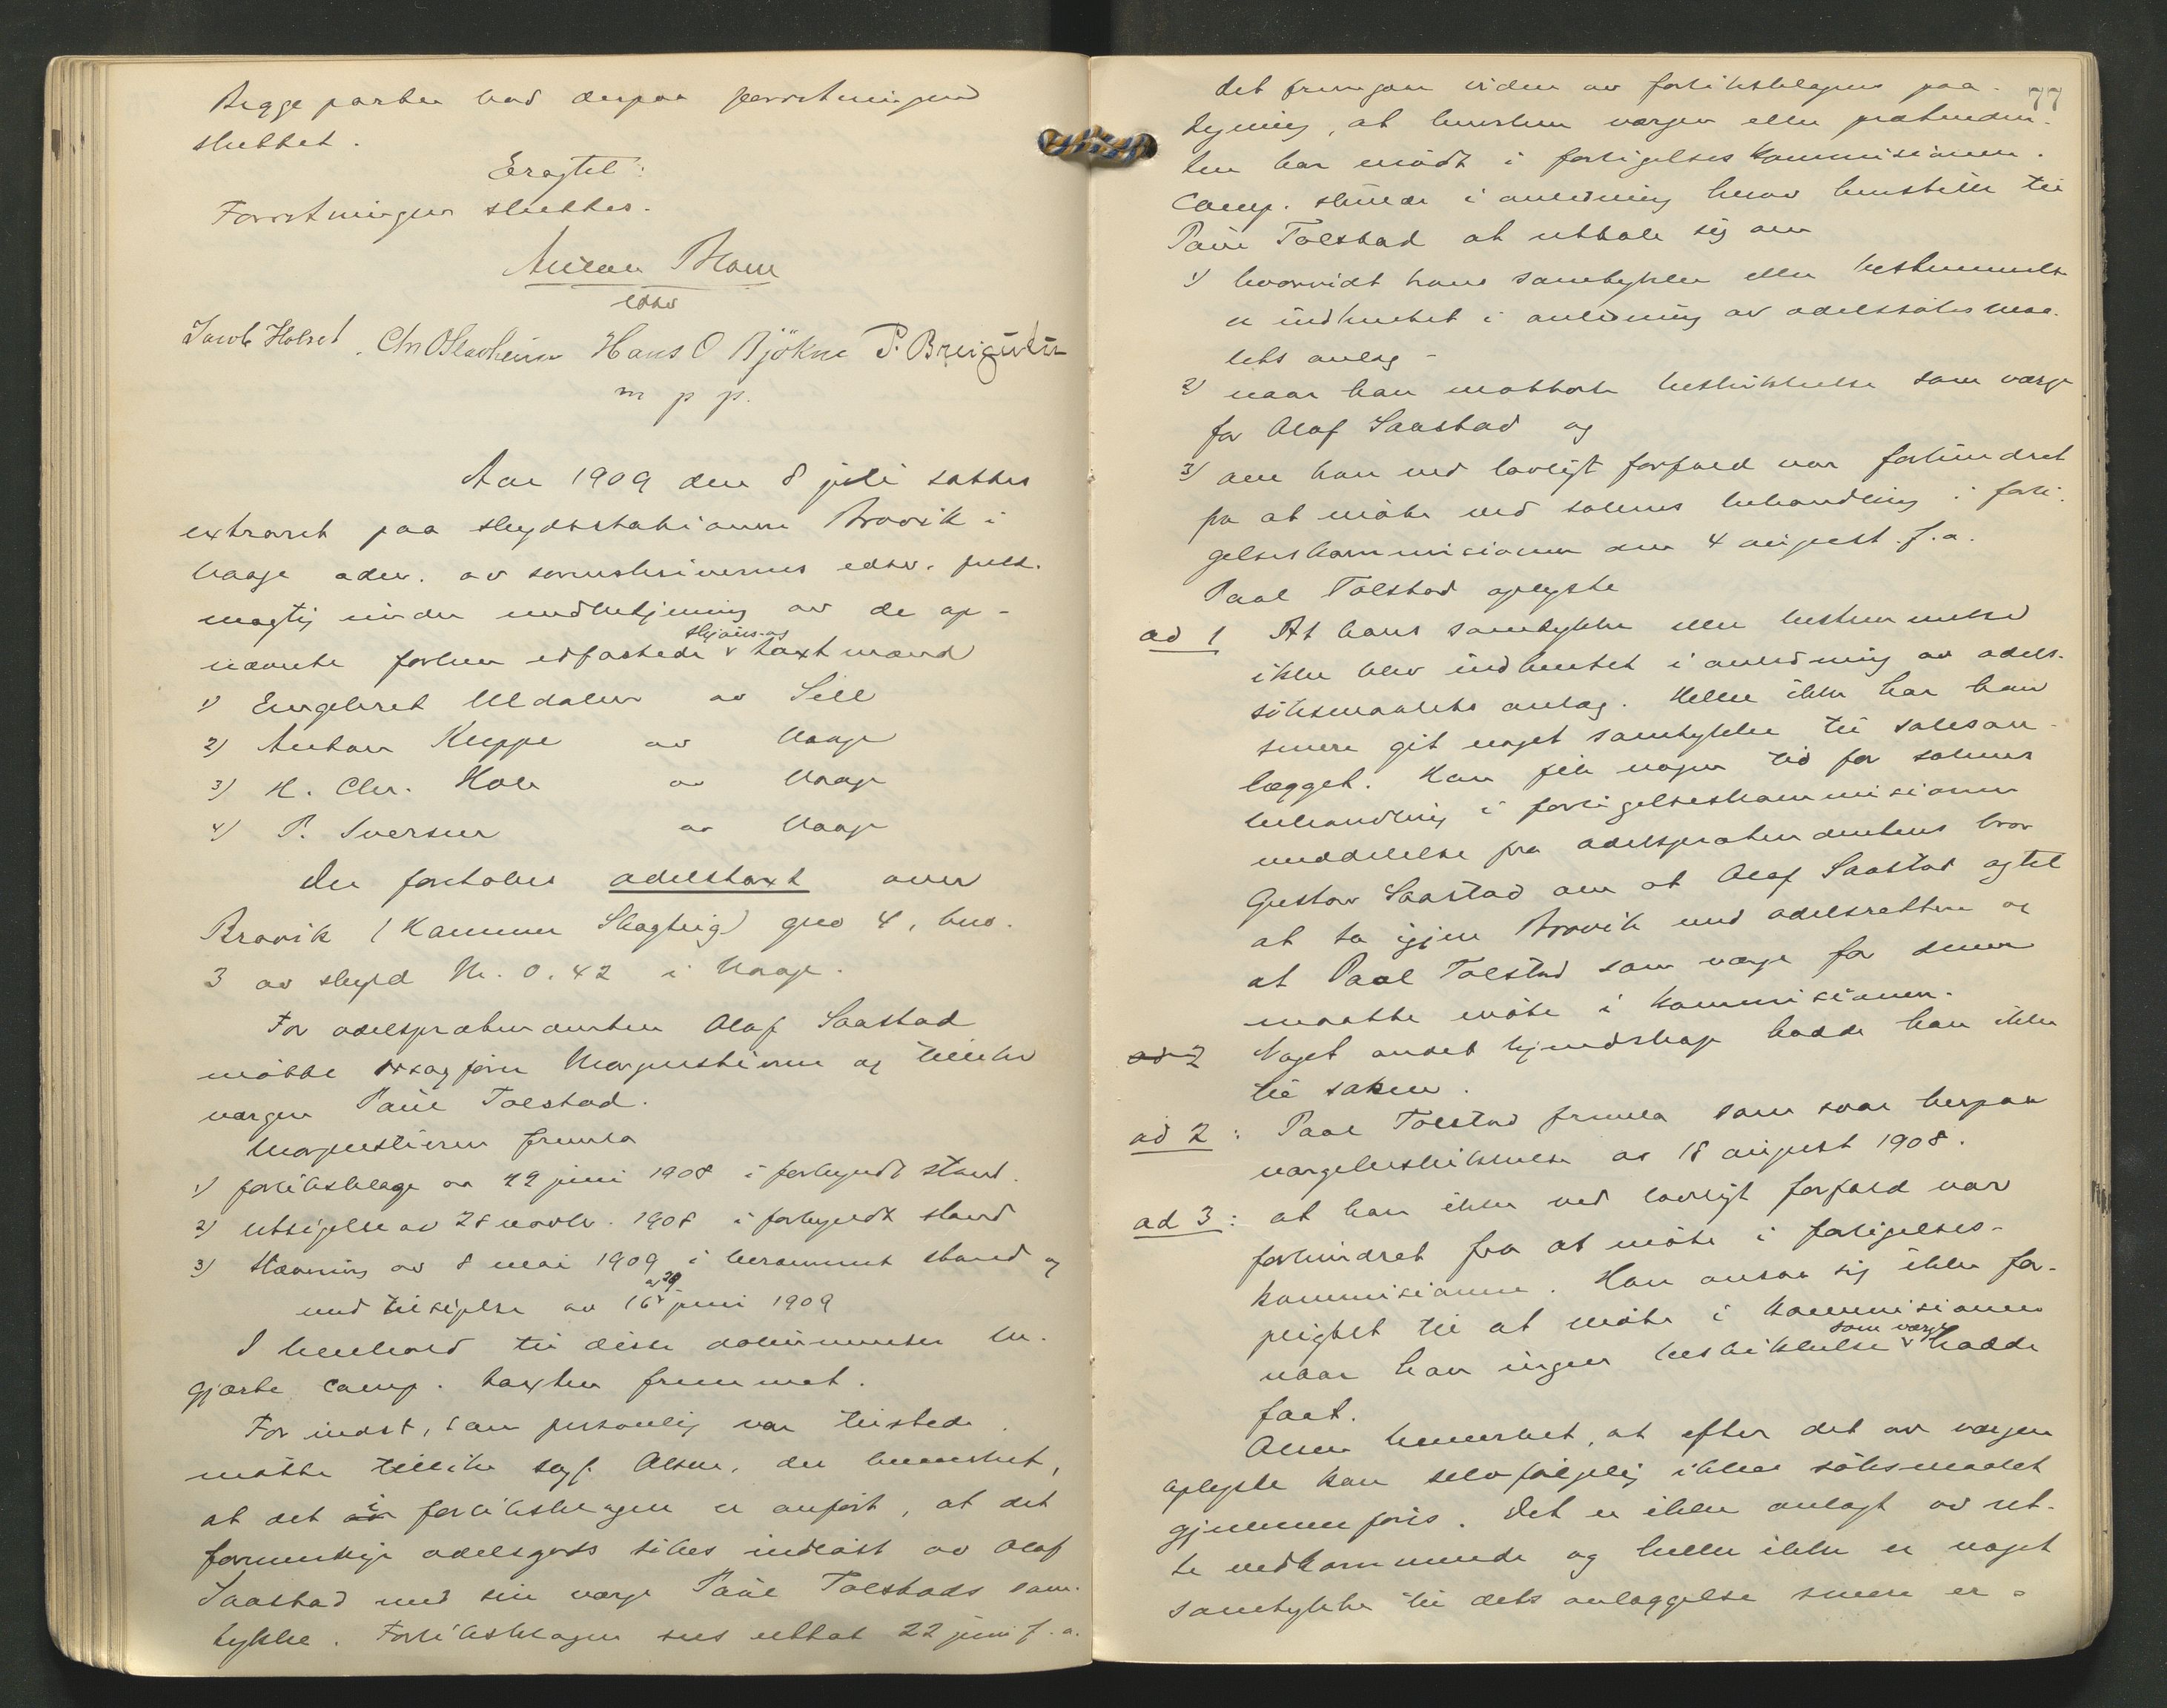 Begge parter bad derpaa forretningen
sluttet.
Eragtet:
Forretningen sluttes.
Anton Blom
edsv
Jacob Holset. Chr Olavheim Hans O Bjökne P. Breigutu
m p p.
Aar 1909 den 8 juli sattes
extraret paa skydsstationen Brovik i
Vaage adm. av sorenskriverens edsv. fuld-
mægtig under medbetjening av de op-
nævnte forhen edfæstede skjøns- og taxtmænd
1) Engebret Uldalen av Sell
2) Anton Kleppe av Vaage
3) H. Chr. Hole av Vaage
4) P. Iversen av Vaage
Der foretokes odelstaxt over
Brovik (Kammen Slagtrig) gno 4, bno.
3 av skyld Mr. 0.42 i Vaage.
For odelsprætendenten Olaf Saastad
mötte sagförer Morgenstierne og tillike
vergen Paul Tolstad.
Morgenstierne fremla
1) forliksklage av 22 juni 1908 i forkyndt stand.
2) utsigelse av 28 novbr. 1908 i forkyndt stand
3) Stævning av 8 mai 1909 i berammet stand og
med tilsigelse av 16 og 29 juni 1909
I henhold til disse dokumenter be-
gjærte comp. taxten fremmet.
For indst, som personlig var tilstede
mötte tillike sagf. Olsen, der bemerket,
at det av i forliksklagen er anfört, at det
formentlige odelsgods sökes indlöst av Olaf
Saastad med sin verge Paul Tolstads sam-
tykke. Forliksklagen sees uttat 22 juni f.a.
77
Det fremgaar videre av forliksklagens paa-
tegning, at hverken vergen eller prætenden-
ten har mödt i forligelseskommisionen.
Comp. skulde i anledning herav henstille til
Paul Tolstad at uttale sig om
1) hvorvidt hans samtykke eller bestemmelse
er indhentet i anledning av odelssöksmaa-
lets anlæg -
2) naar han mottok beskikkelse som verge
for Olaf Saastad og
3) om han ved lovligt forfald var forhindret
fra at möte ved sakens behandling i forli-
gelseskommisionen den 4 august f.a.
Paal Tolstad oplyste
ad 1 At hans samtykke eller bestemmelse
ikke blev indhentet i anledning av odels-
söksmaalets anlæg. Heller ikke har han
senere git noget samtykke til saksan-
lægget. Han fik nogen tid for sakens
behandling i forligelseskommisionen
meddelelse fra odelsprætendentens bror
Gustav Saastad om at Olaf Saastad agtet
at ta igjen Brovik med odelsretten og
at Paal Tolstad som verge for denne
maatte möte i kommisionen.
ad 2 Noget andet kjendskap hadde han ikke
til saken.
ad 2: Paal Tolstad fremla som svar herpaa
vergebeskikkelse av 18 august 1908.
ad 3: at han ikke ved lovligt forfald var
forhindret fra at möte i forligelses-
kommisionen. Han ansaa sig ikke for-
pligtet til at möte i kommisionen
naar han ingen beskikkelse som verge hadde
faat.
Olsen bemerket, at efter det av vergen
oplyste kan selvfölgelig ikke söksmaalet
gjennemföres. Det er ikke anlagt av ret-
te vedkommende og heller ikke er noget
samtykke til dets anlæggelse senere er-